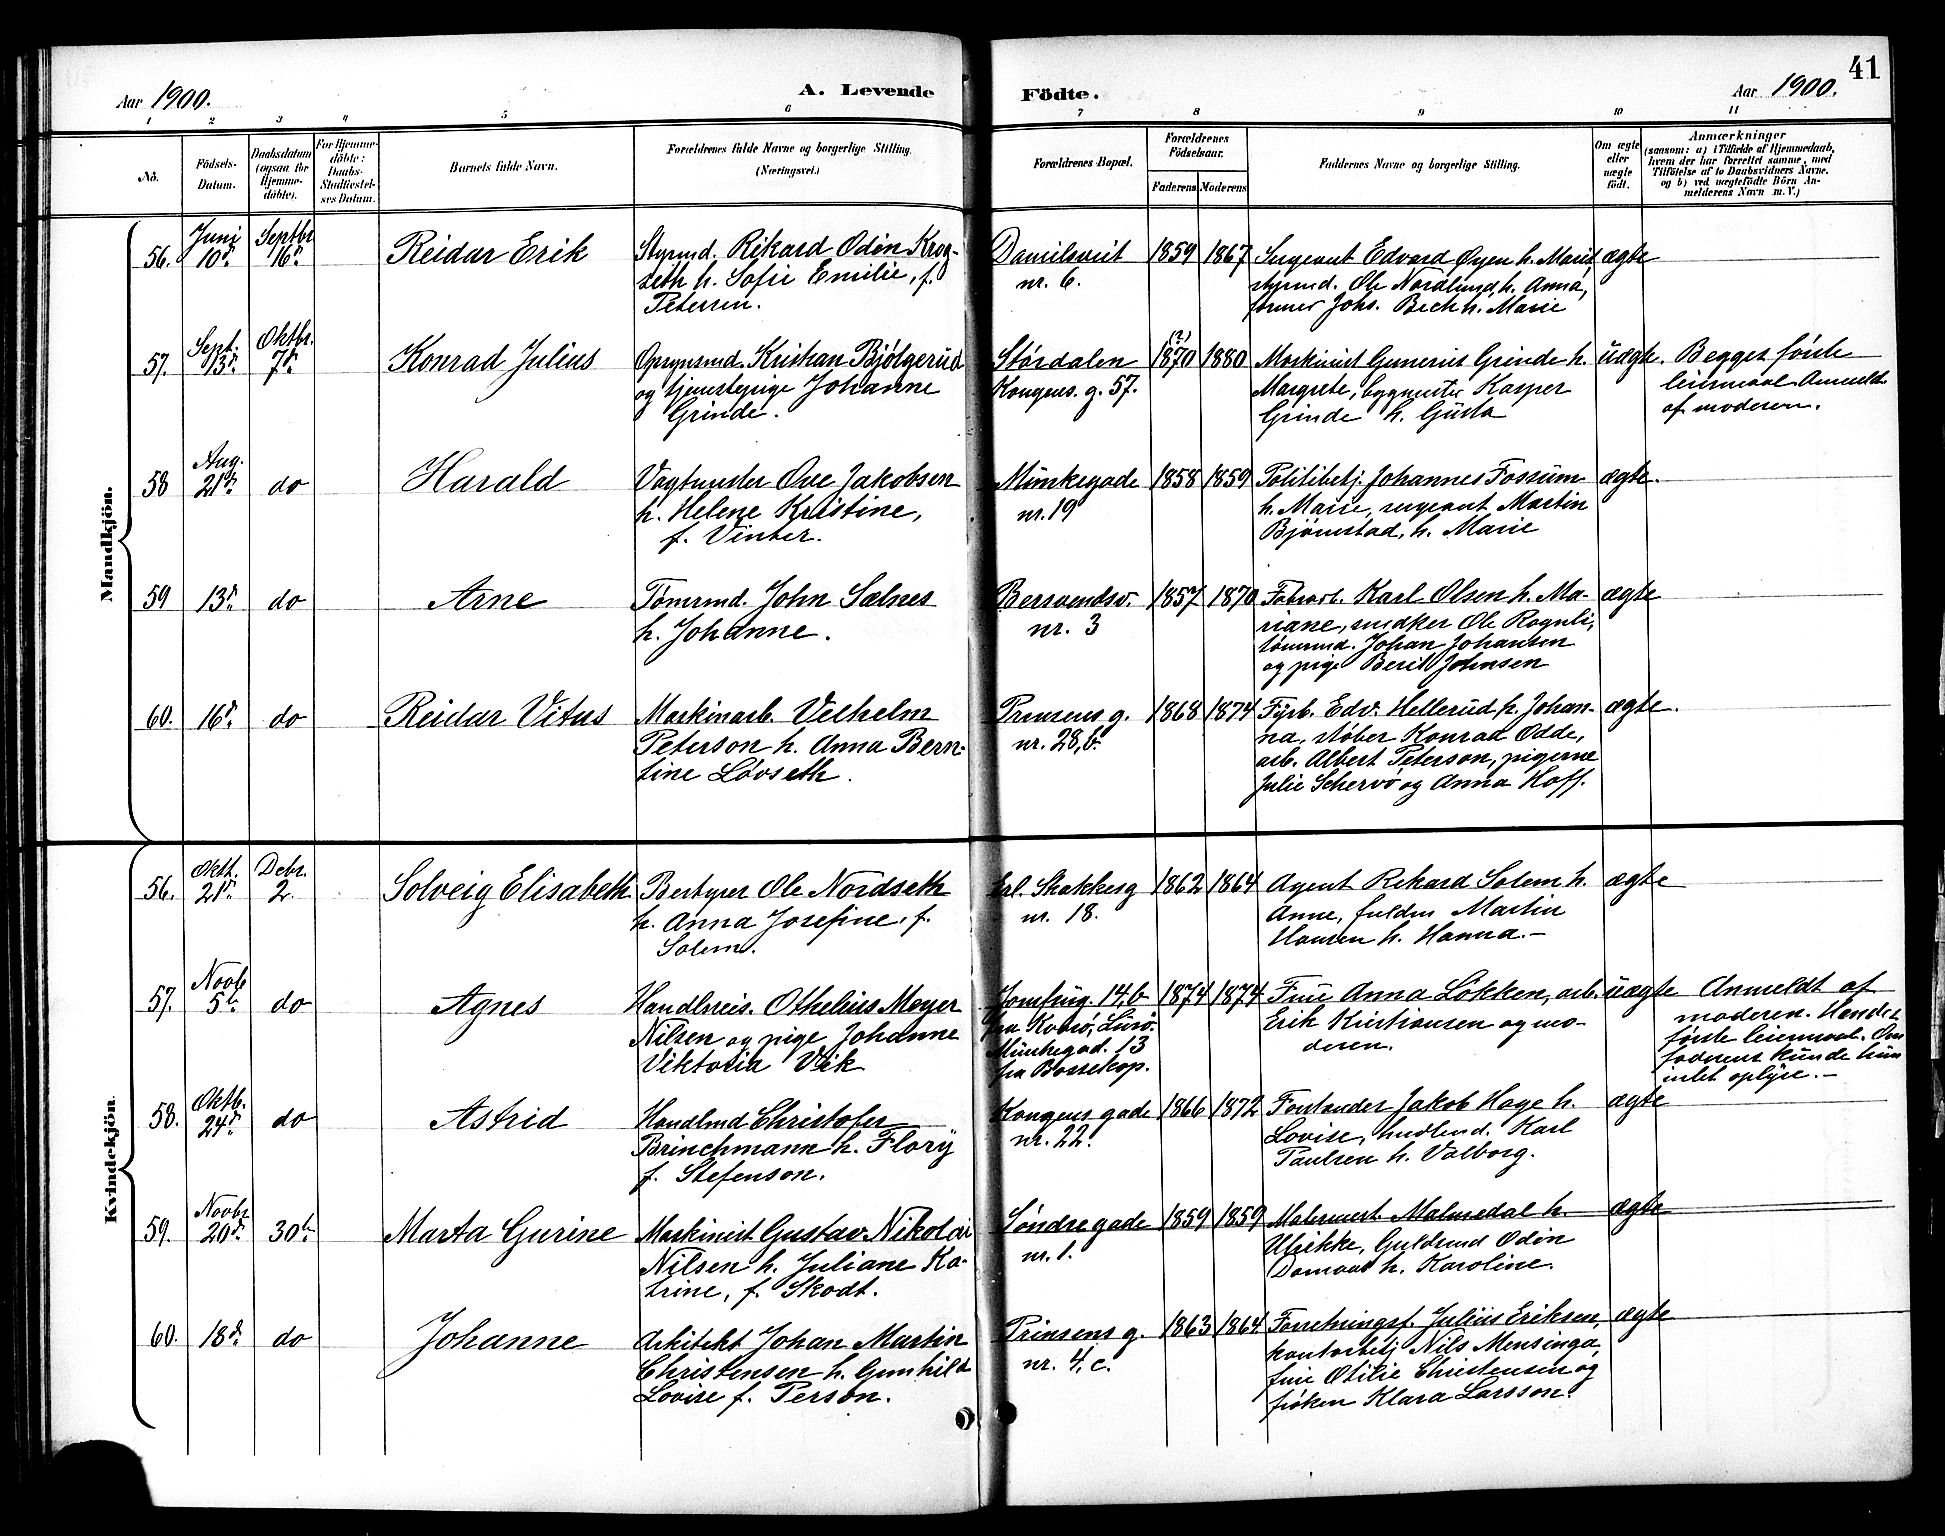 41
Aar 1900. A. Levende Födte. Aar 1900.
1 2 3 4 5 6 7 8 9 10 11
No. Födsels-Datum. Daabsdatum (ogsaa for Hjemmedöbte). For Hjemmedöbte: Daabs-Stadfæstelses Datum. Barnets fulde Navn. Forældrenes fulde Navne og borgerlige Stilling. (Næringsvei.) Forældrenes Bopæl. Forældrenes Födselsaar. Faderens Moderens Faddernes Navne og borgerlige Stilling. Om ægte eller uægte født. Anmærkninger (saasom: a) i Tilfælde af Hjemmedaab, hvem der har forrettet samme, med Tilföielse af to Daabsvidners Navne, og b) ved uægtefödte Börn Anmelderens Navn m. V.)
Mandkjön.
56. Juni 10d. Septbr 16d. Reidar Erik Styrmd. Rikard Odin Krog- Danielsveit 1859 1867 Sergeant Edvard Øyen h. Marit, ægte
seth h. Sofie Emilie, f. nr. 6. styrmd. Ole Nordlund, h. Anna,
Petersen. former Johs. Bech h. Marie
57. Sept. 13d. Oktbr. 7d. Konrad Julius Opsynsmd. Kristian Bjølgerud Størdalen (?) 1870 1880 Maskinist Gunerius Grinde h. uægte. Begges første
og tjenestepige Johanne Kongens. g. 57. Margrete, bygmester Kasper leiermaal. Anmeldt
Grinde. Grinde h. Gusta af moderen.
58 Aug. 21d. do Harald Vogtmester Ove Jakobsen Munkegade 1858 1859 Politibetj. Johannes Fossum ægte.
h. Helene Kristine, nr. 19 h. Marie, sergeant Martin
f. Vinter. Bjørnstad, h. Marie
59 13d. do Arne Tømrmd. John Salnes Bersvendsv. 1857 1870 Fabrarb. Karl Olsen h. Ma- ægte
h. Johanne. nr. 3 riane, snedker Ole Rognli,
tømrmd. Johan Johansen
og pige Berit Johnsen
60. 16d. do Reidar Vitus Maskinarb. Velhelm Prinsens g. 1868 1874 Fyrb. Edv. Hellerud h. Johan- ægte.
Peterson h. Anna Bern- nr. 28,b. na, støber Konrad Odde,
tine Løvseth. arb. Albert Peterson, pigerne
Julie Schervø og Anna Hoff.
Kvindekjön.
56. Oktb. 21d. Debr. 2. Solveig Elisabeth Bestyrer Ole Nordseth Erl. Skakkesg 1862 1864 Agent Rikard Solem h. ægte
h. Anna Josefine, f. nr. 18. Anne, fuldm Martin
Solem. Hansen h. Hanna.-
57. Novb 5te do Agnes Handlsreis. Othelius Meyer Jomfrug. 14,b 1874 1874 Frue Anna Løkken, arb. uægte Anmeldt af
Nilsen og pige Johanne fra Kvarø, Lurø. Erik Kristiansen og mo- moderen. Hendes
Viktoria Vik Munkegad. 13 deren. første leiermaal. Om
fra Bossekop. faderens kunde hun
intet oplyse.-
58. Oktb. 24d. do Astrid Handlmd Christofer Kongens gade 1866 1872 Forstander Jakob Hage h. ægte
Brinchmann h. Flory nr. 22. Lovise, handlmd. Karl
f. Stefenson. Paulsen h. Valborg.
59. Novbr 20d. 30te Marta Gurine Maskinist Gustav Nikolai Søndregade 1859 1859 Malermest. Malmedal h. ægte
Nilsen h. Juliane Ka- nr. 1. Ulrikke, Guldsmd Odin
trine, f. Skodt. Damaas h. Karoline.
60. 18d. do Johanne Arkitekt Johan Martin Prinsens g. 1863 1864 Forretningsf. Julius Eriksen, ægte
Christensen h. Gunhild nr. 4, c. kontorbetj Nils Mensinga,
Lovise f. Person. frue Otilie Christensen og
frøken Klara Larsson.